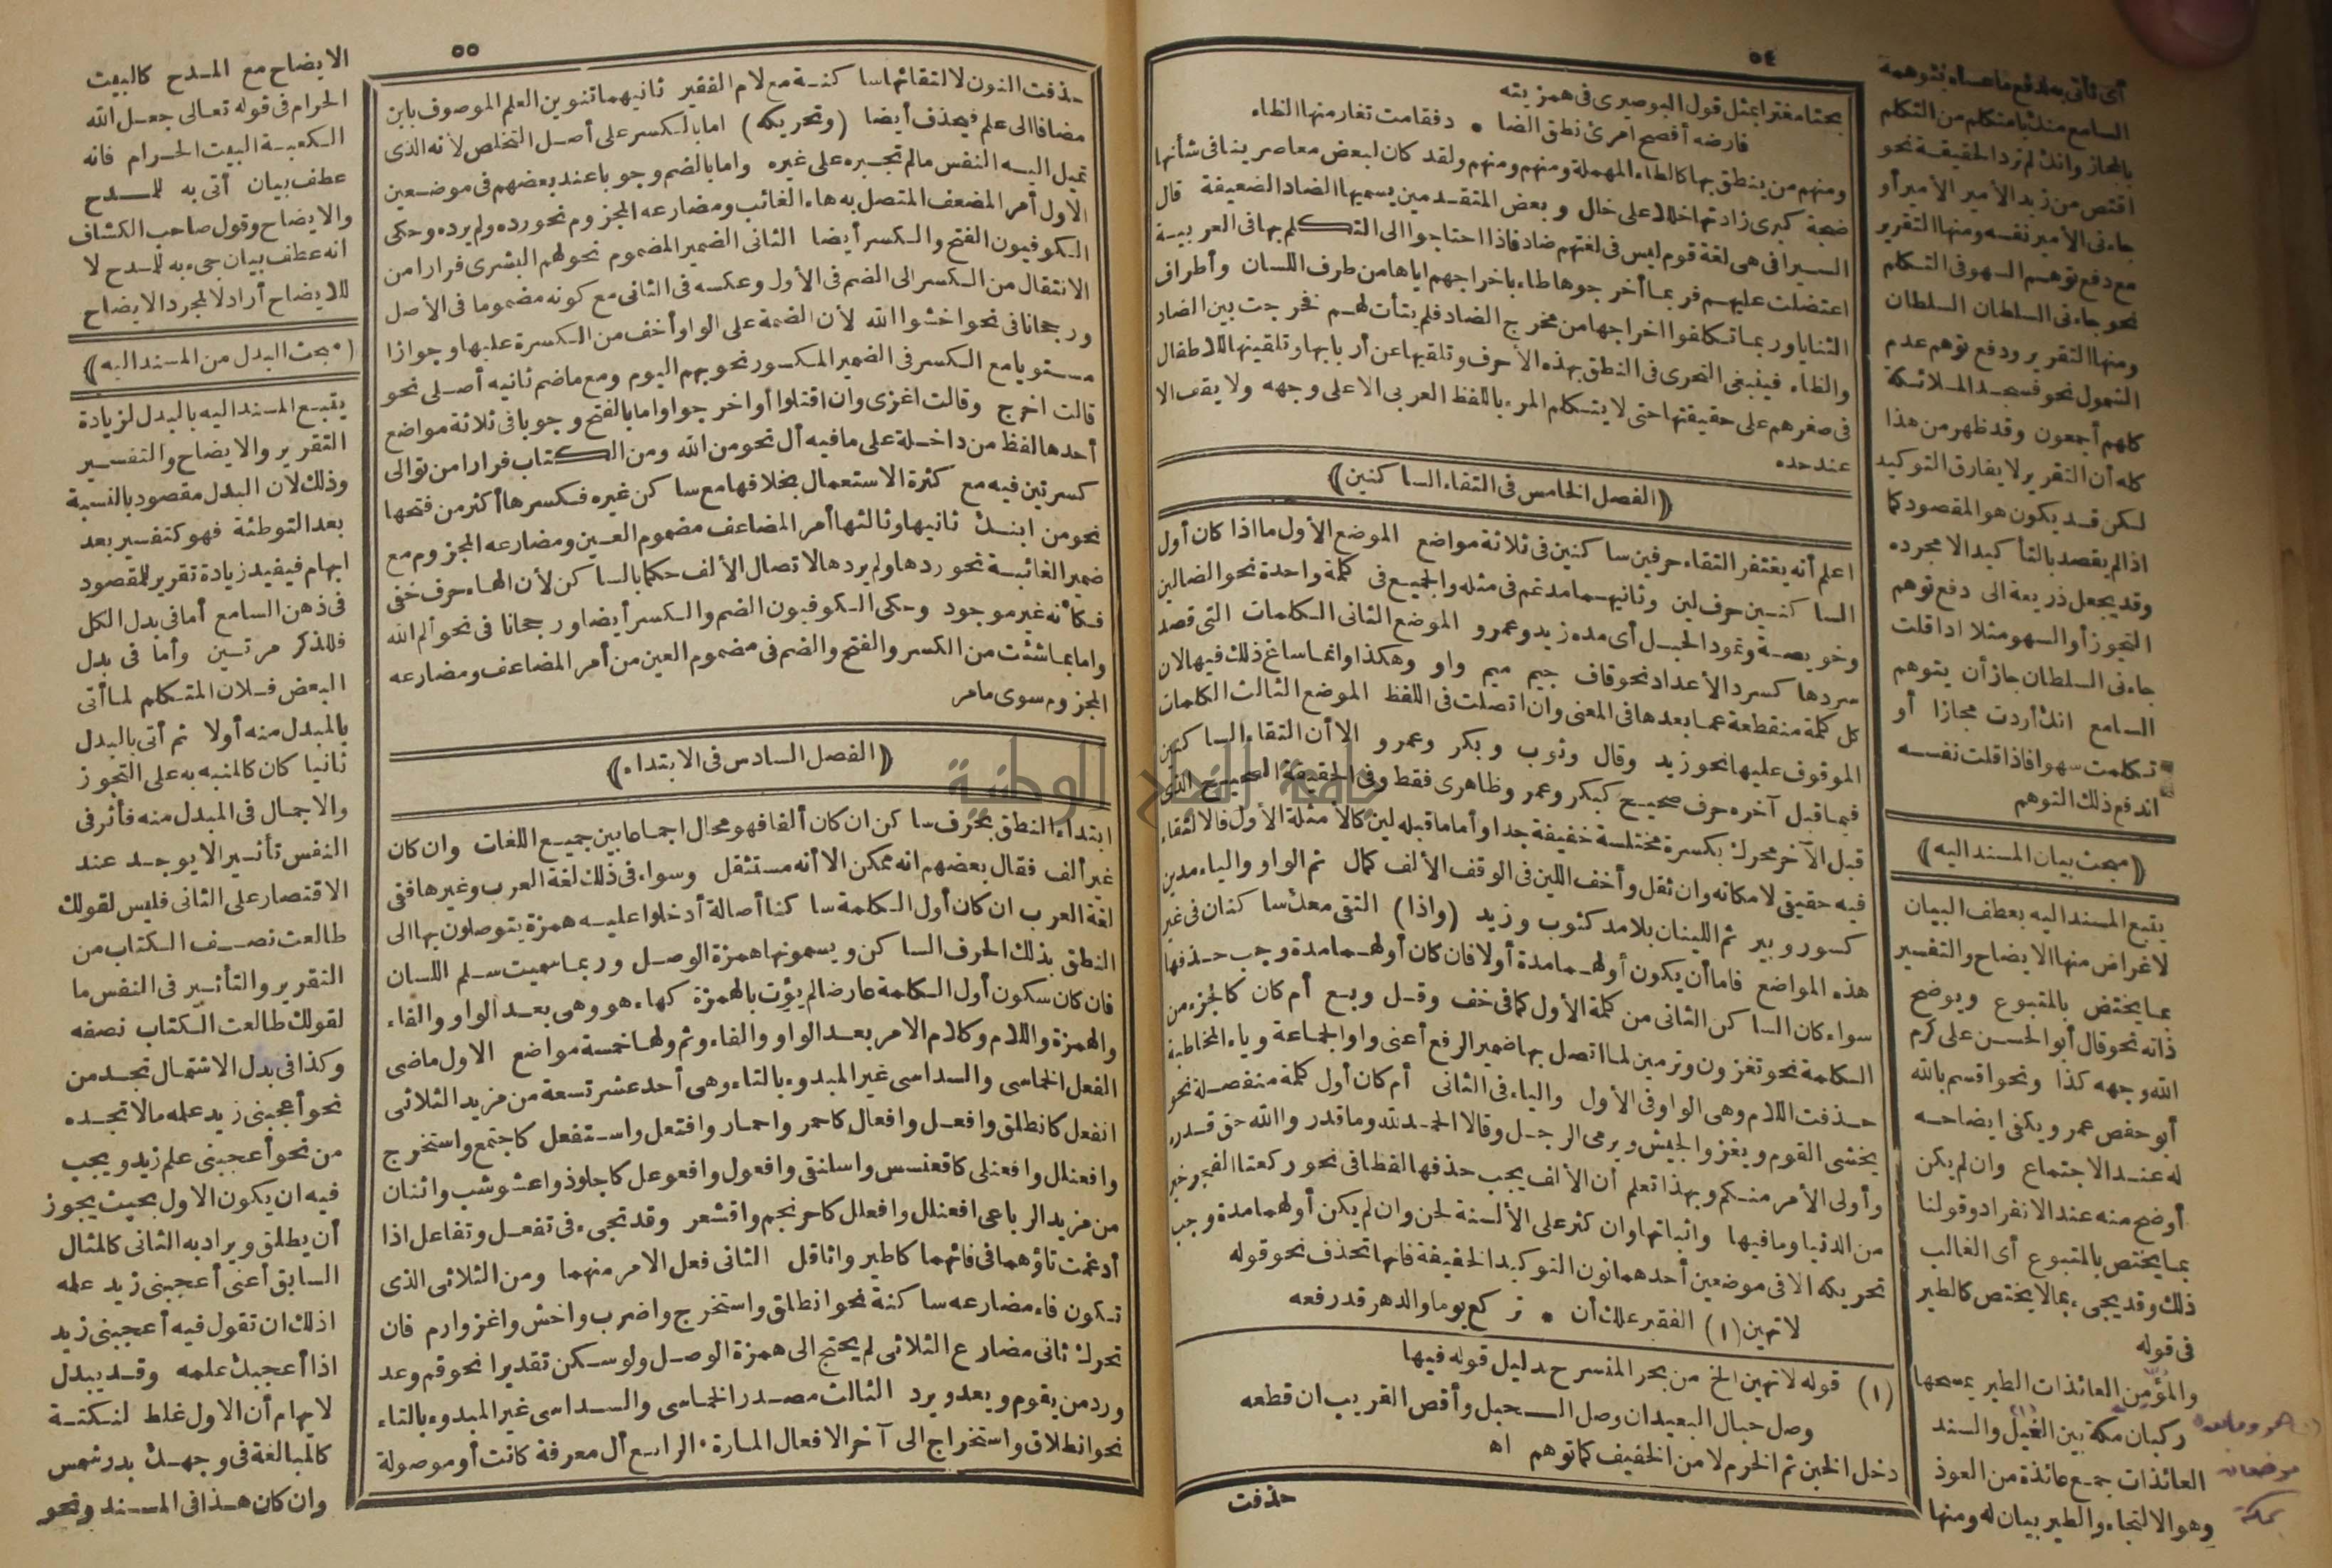 ٥٤
بحثا مغترا بمثل قول البوصيرى فى همزيته
فارضه أفصح امرئ نطق الضا • دفقامت تغار منها الظاء
ومنهم من ينطق بها كالطاء المهملة ومنهم ومنهم ولقد كان لبعض معاصرينا فى شأنها
ضجة كبرى زادتها خلالا على خال وبعض المتقدمين يسميها الضاد الضعيفة قال
السيرافى هى لغة قوم ليس فى لغتهم ضاد فاذا احتاجوا الى التكلم بها فى العربية
اعتضلت عليهم فربما أخرجوها ظاء باخراجهم اياها من طرف اللسان وأطراف
الثنايا وربما تكلفوا اخراجها من مخرج الضاد فلم يتأت لهم فخرجت بين الضاد
والظاء فينبغى التحرى فى النطق بهذه الأحرف وتلقيها عن أربابها وتلقينها للاطفال
فى صغرهم على حقيقتها حتى لا يتكلم المرء باللفظ العربى الا على وجهه ولا يقف الا
عند حده
﴿الفصل الخامس فى التقاء الساكنين﴾
اعلم أنه يغتفر التقاء حرفين ساكنين فى ثلاثة مواضع الموضع الأول ما اذا كان أول
الساكنين حرف لين وثانيهما مدغم فى مثله والجميع فى كلمة واحدة نحو الضالين
وخويصة وتمود الحبل أى مده زيد وعمرو الموضع الثانى الكلمات التى قصد
سردها كسرد الأعداد نحو قاف جيم ميم واو وهكذا وانما ساغ ذلك فيها لان
كل كلمة منقطعة عما بعدها فى المعنى وان اتصلت فى اللفظ الموضع الثالث الكلمات
الموقوف عليها نحو زيد وقال وثوب وبكر وعمرو الا أن التقاء الساكنين
فيما قبل آخره حرف صحيح كبكر وعمرو ظاهرى فقط وفى الحقيقة الصحيح الذى
قبل الآخر محرك بكسرة مختلسة خفيفة جدا وأما ما قبله لين كالأمثلة الأول فالالتقاء
فيه حقيقى لامكانه وان ثقل وأخف اللين فى الوقف الألف كمال ثم الواو والياء مدين
كسور وبير ثم اللينان بلا مد كثوب وزيد (واذا) التقى معك ساكنان فى غير
هذه المواضع فاما أن يكون أولهما مدة أولا فان كان أولهما مدة وجب حذفها
سواء كان الساكن الثانى من كلمة الأول كما فى خف وقل وبع أم كان كالجزء من
الكلمة نحو تغزون وترمين لما اتصل بها ضمير الرفع أعنى واو الجماعة وياء المخاطبة
حذفت اللام وهى الواو فى الأول والياء فى الثانى أم كان أول كلمة منفصلة نحو
يخشى القوم ويغزو الجيش ويرمى الرجل وقالا الحمد لله وما قدروا الله حق قدره
وأولى الأمر منكم وبهذا تعلم أن الألف يجب حذفها لفظا فى نحو ركعتا الفجر خير
من الدنيا وما فيها واثباتها وان كثر على الألسنة لحن وان لم يكن أولهما مدة وجب
تحريكه الا فى موضعين أحدهما نون التوكيد الخفيفة فانها تحذف نحو قوله
لا تهين (١) الفقير علك أن • تركع يوما والدهر قد رفعه
(١) قوله لا تهين الخ من بحر المنسرح بدليل قوله فيها
وصل حبال البعيد ان وصل الـحبل وأقص القريب ان قطعه
دخل الخبن ثم الخرم لا من الخفيف كما توهم اه
حذفت
أى تأتى به لدفع ما عساه يتوهمه
السامع منك يا متكلم من التكلم
بالمجاز وانك لم ترد الحقيقة نحو
اقتص من زيد الأمير الأمير أو
جاءنى الأمير نفسه ومنها التقرير
مع دفع توهم السهو فى التكلم
نحو جاءنى السلطان السلطان
ومنها التقرير ودفع توهم عدم
الشمول نحو فسجد الملائكة
كلهم أجمعون وقد ظهر من هذا
كله أن التقرير لا يفارق التوكيد
لكن قد يكون هو المقصود كما
اذا لم يقصد بالتأكيد الا مجرده
وقد يجعل ذريعة الى دفع توهم
التجوز أو السهو مثلا اذا قلت
جاءنى السلطان جاز أن يتوهم
السامع انك أردت مجازا أو
تكلمت سهوا فاذا قلت نفسه
اندفع ذلك التوهم
﴿مبحث بيان المسند اليه﴾
يتبع المسند اليه بعطف البيان
لاغراض منها الايضاح والتفسير
بما يختص بالمتبوع ويوضح
ذاته نحو قال أبو الحسن على كرم
الله وجهه كذا ونحو اقسم بالله
أبو حفص عمر ويكفى ايضاحه
له عند الاجتماع وان لم يكن
أوضح منه عند الانفراد وقولنا
بما يختص بالمتبوع أى الغالب
ذلك وقد يجىء بما لا يختص كالطير
فى قوله
والمؤمن العائذات الطير يمسحها
ركبان مكة بين الغيل والسند
العائذات جمع عائذة من العوذ
وهو الالتجاء والطير بيان له ومنها
(١) هو وما بعده
موضعان
بمكة
٥٥
ـذفت النون لالتقائها ساكنة مع لام الفقير ثانيهما تنوين العلم الموصوف بابن
مضافا الى علم فيحذف أيضا (وتحريكه) اما بالكسر على أصل التخلص لأنه الذى
تميل اليه النفس مالم تجبره على غيره واما بالضم وجوبا عند بعضهم فى موضعين
الأول أمر المضعف المتصل به هاء الغائب ومضارعه المجزوم نحو رده ولم يرده وحكى
الكوفيون الفتح والكسر أيضا الثانى الضمير المضموم نحو لهم البشرى فرارا من
الانتقال من الكسر الى الضم فى الأول وعكسه فى الثانى مع كونه مضموما فى الأصل
ورجحانا فى نحو اخشوا الله لأن الضمة على الواو أخف من الكسرة عليها وجوازا
مستويا مع الكسر فى الضمير المكسور نحو بهم اليوم ومع ما ضم ثانيه أصلى نحو
قالت اخرج وقالت اغزى وان اقتلوا أو اخرجوا واما بالفتح وجوبا فى ثلاثة مواضع
أحدها لفظ من داخلة على ما فيه أل نحو من الله ومن الكتاب فرارا من توالى
كسرتين فيه مع كثرة الاستعمال بخلافها مع ساكن غيره فكسرها أكثر من فتحها
نحو من ابنك ثانيها وثالثها أمر المضاعف مضموم العين ومضارعه المجزوم مع
ضمير الغائبة نحو ردها ولم يردها لاتصال الألف حكما بالساكن لأن الهاء حرف خفى
فكأنه غير موجود وحكى الكوفيون الضم والكسر أيضا ورجحانا فى نحو الم الله
واما بما شئت من الكسر والفتح والضم فى مضموم العين من أمر المضاعف ومضارعه
المجزوم سوى ما مر
﴿الفصل السادس فى الابتداء﴾
ابتداء النطق بحرف ساكن ان كان ألفا فهو محال اجماعا بين جميع اللغات وان كان
غير ألف فقال بعضهم انه ممكن الا أنه مستثقل وسواء فى ذلك لغة العرب وغيرها ففى
لغة العرب ان كان أول الكلمة ساكنا أصالة أدخلوا عليه همزة يتوصلون بها الى
النطق بذلك الحرف الساكن ويسمونها همزة الوصل وربما سميت سلم اللسان
فان كان سكون أول الكلمة عارضا لم يؤت بالهمزة كهاء هو وهى بعد الواو والفاء
والهمزة واللام وكلام الامر بعد الواو والفاء وثم ولها خمسة مواضع الاول ماضى
الفعل الخماسى والسداسى غير المبدوء بالتاء وهى أحد عشر تسعة من مزيد الثلاثى
انفعل كانطلق وافعل وافعال كاحمر واحمار وافتعل واستفعل كاجتمع واستخرج
وافعنلل وافعنلى كاقعنسس واسلنقى وافعول وافعوعل كاجلوذ واعشوشب واثنان
من مزيد الرباعى افعنلل وافعلل كاحرنجم واقشعر وقد تجىء فى تفعل وتفاعل اذا
أدغمت تاؤهما فى فائهما كاطير واثاقل الثانى فعل الامر منهما ومن الثلاثى الذى
تكون فاء مضارعه ساكنة نحو انطلق واستخرج واضرب واخش واغز وارم فان
تحرك ثانى مضارع الثلاثى لم يحتج الى همزة الوصل ولو سكن تقديرا نحو قم وعد
ورد من يقوم ويعد ويرد الثالث مصدر الخماسى والسداسى غير المبدوء بالتاء
نحو انطلاق واستخراج الى آخر الافعال المارة • الرابع أل معرفة كانت أو موصولة
الايضاح مع المدح كالبيت
الحرام فى قوله تعالى جعل الله
الكعبة البيت الحرام فانه
عطف بيان أتى به للمدح
والايضاح وقول صاحب الكشاف
انه عطف بيان جىء به للمدح لا
للايضاح أراد لا لمجرد الايضاح
﴿مبحث البدل من المسند اليه﴾
يتبع المسند اليه بالبدل لزيادة
التقرير والايضاح والتفسير
وذلك لان البدل مقصود بالنسبة
بعد التوطئة فهو كتفسير بعد
ابهام فيفيد زيادة تقرير للمقصود
فى ذهن السامع أما فى بدل الكل
فللذكر مرتين وأما فى بدل
البعض فلان المتكلم لما أتى
بالمبدل منه أولا ثم أتى بالبدل
ثانيا كان كالمنبه به على التجوز
والاجمال فى المبدل منه فأثر فى
النفس تأثيرا لا يوجد عند
الاقتصار على الثانى فليس لقولك
طالعت نصف الكتاب من
التقرير والتأثير فى النفس ما
لقولك طالعت الكتاب نصفه
وكذا فى بدل الاشتمال تجد من
نحو أعجبنى زيد علمه مالا تجده
من نحو أعجبنى علم زيد ويجب
فيه ان يكون الاول بحيث يجوز
أن يطلق ويراد به الثانى كالمثال
السابق أعنى أعجبنى زيد علمه
اذ لك ان تقول فيه أعجبنى زيد
اذا أعجبك علمه وقد يبدل
لايهام أن الاول غلط لنكتة
كالمبالغة فى وجهك بدر شمس
وان كان هذا فى المسند ونحو
جامعة النجاح الوطنية